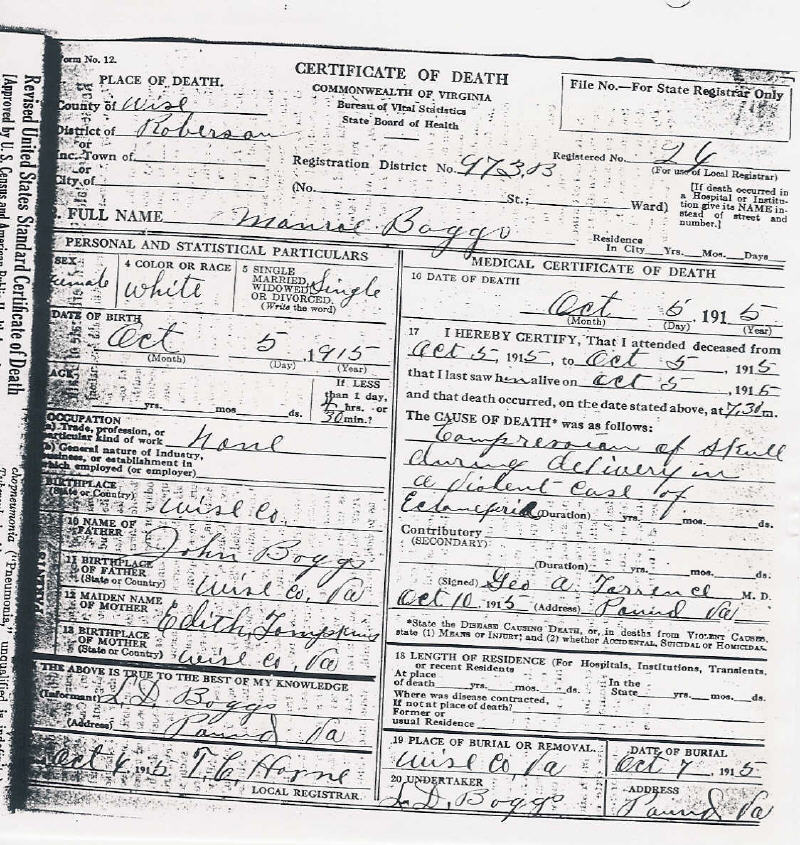 Form No. 12.
CERTIFICATE OF DEATH
COMMONWEALTH OF VIRGINIA
Bureau of Vital Statistics
State Board of Health
File No.—For State Registrar Only
PLACE OF DEATH.
County of Wise
District of Roberson
or
Inc. Town of
or
City of
Registration District No. 973B
Registered No. 24
(For use of Local Registrar)
(No. St.; Ward)
[If death occurred in
a Hospital or Institu-
tion give its NAME in-
stead of street and
number.]
FULL NAME Monroe Boggs
Residence
In City Yrs. Mos. Days
PERSONAL AND STATISTICAL PARTICULARS
SEX
4 COLOR OR RACE
white
5 SINGLE
MARRIED,
WIDOWED,
OR DIVORCED.
(Write the word)
Single
DATE OF BIRTH
Oct 5, 1915
(Month) (Day) (Year)
AGE
yrs. mos ds.
If LESS
than 1 day,
hrs. or
30 min.?
OCCUPATION
(a) Trade, profession, or
particular kind of work None
(b) General nature of Industry,
business, or establishment in
which employed (or employer)
BIRTHPLACE
(State or Country) Wise Co.
10 NAME OF
FATHER John Boggs
11 BIRTHPLACE
OF FATHER
(State or Country) Wise Co, Va
12 MAIDEN NAME
OF MOTHER Edith Tompkins
13 BIRTHPLACE
OF MOTHER
(State or Country) Wise Co, Va
PARENTS
THE ABOVE IS TRUE TO THE BEST OF MY KNOWLEDGE
(Informant) L. D. Boggs
(Address) Pound Va
Oct 1915 T. C. Horne
LOCAL REGISTRAR.
MEDICAL CERTIFICATE OF DEATH
16 DATE OF DEATH
Oct 5, 1915
(Month) (Day) (Year)
17 I HEREBY CERTIFY, That I attended deceased from
Oct 5 1915, to Oct 5, 1915
that I last saw him alive on Oct 5, 1915
and that death occurred, on the date stated above, at 7.30 m.
The CAUSE OF DEATH* was as follows:
Compression of Skull
during delivery in
a violent case of
Eclampsia (Duration) yrs. mos. ds.
Contributory
(SECONDARY)
(Duration) yrs. mos. ds.
(Signed) Geo A. Torrence M. D.
Oct 10, 1915 (Address) Pound Va
*State the DISEASE CAUSING DEATH, or, in deaths from VIOLENT CAUSES,
state (1) MEANS OF INJURY; and (2) whether ACCIDENTAL, SUICIDAL or HOMICIDAL.
18 LENGTH OF RESIDENCE (For Hospitals, Institutions, Transients,
or recent Residents
At place
of death yrs. mos. ds.
In the
State yrs. mos. ds.
Where was disease contracted,
If not at place of death?
Former or
usual Residence
19 PLACE OF BURIAL OR REMOVAL.
Wise Co, Va
DATE OF BURIAL
Oct 7, 1915
20 UNDERTAKER
L. D. Boggs
ADDRESS
Pound Va
Revised United States Standard Certificate of Death